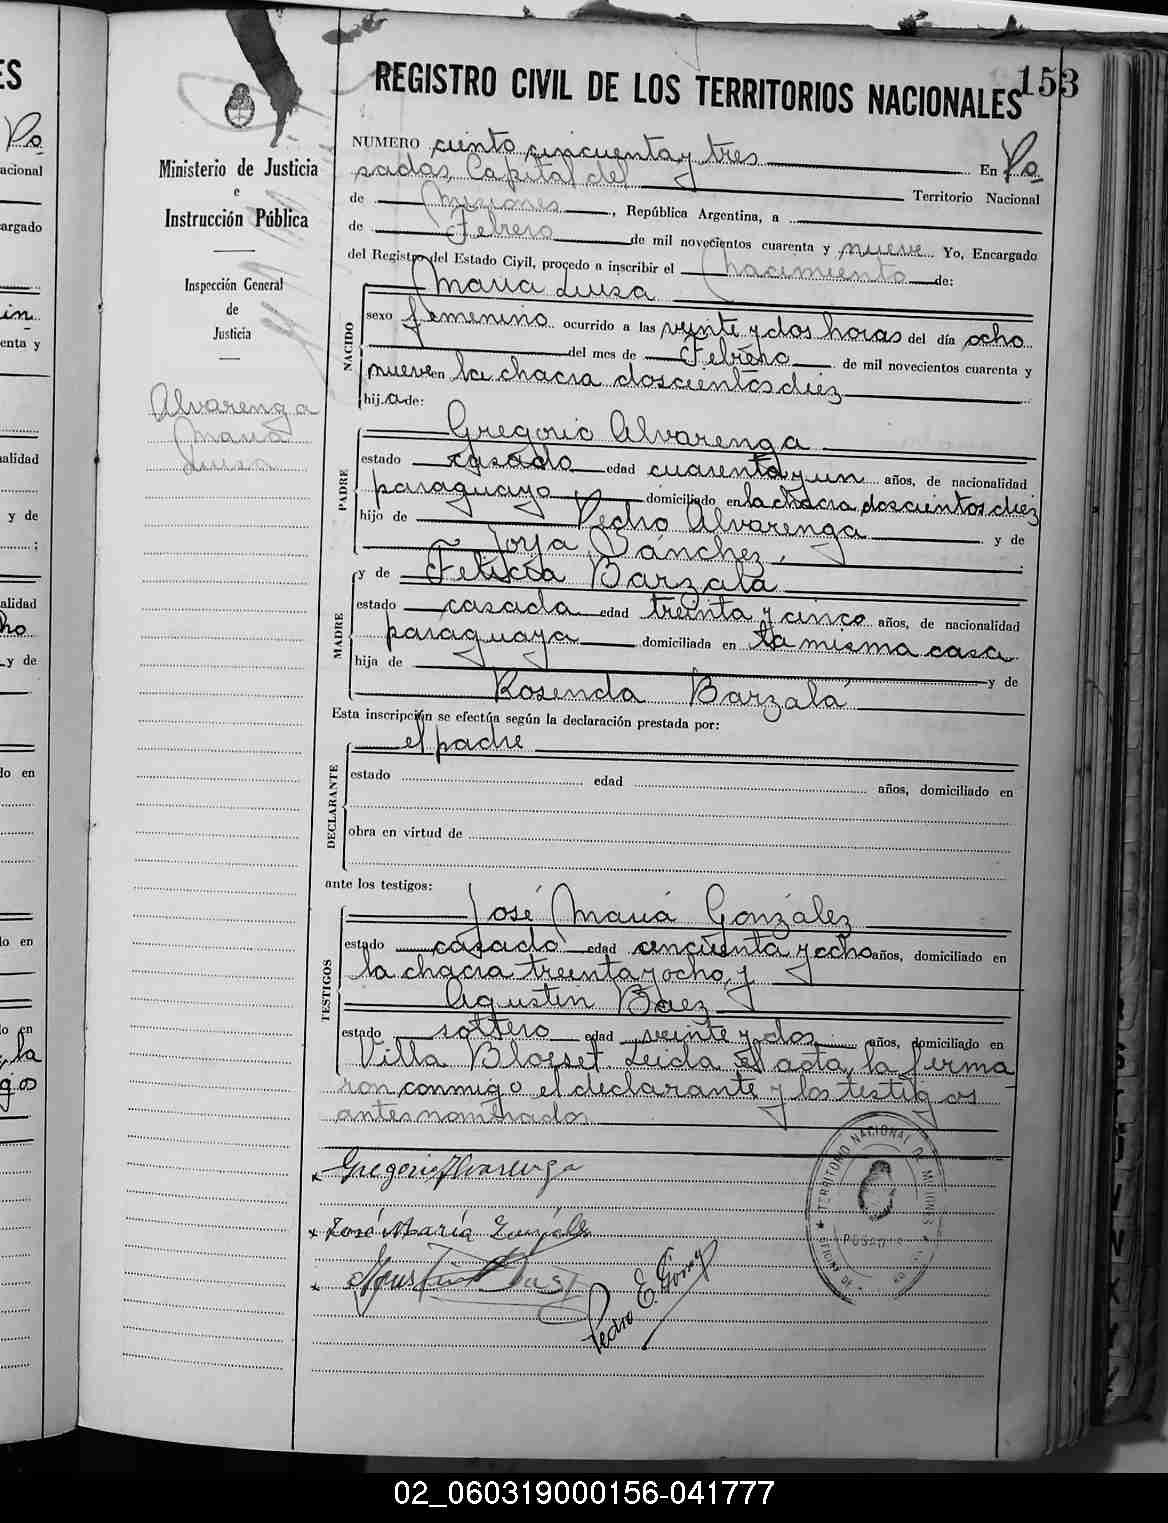 REGISTRO CIVIL DE LOS TERRITORIOS NACIONALES
153
Ministerio de Justicia
e
Instrucción Pública
Inspección General
de
Justicia
Alvarenga
María
Luisa
NUMERO ciento cincuenta y tres En Po
sadas, Capital del Territorio Nacional
de Misiones, República Argentina, a
de Febrero de mil novecientos cuarenta y nueve Yo, Encargado
del Registro del Estado Civil, procedo a inscribir el nacimiento de:
María Luisa
NACIDO
sexo femenino ocurrido a las veinte y dos horas del día ocho
del mes de Febrero de mil novecientos cuarenta y
nueve en la chacra doscientos diez
hija de:
Gregorio Alvarenga
PADRE
estado casado edad cuarenta y un años, de nacionalidad
paraguayo domiciliado en la chacra doscientos diez
hijo de Pedro Alvarenga y de
Toya Sánchez,
y de Felicia Barzala
MADRE
estado casada edad treinta y cinco años, de nacionalidad
paraguaya domiciliada en la misma casa
hija de y de
Rosenda Barzalá
Esta inscripción se efectúa según la declaración prestada por:
el padre
DECLARANTE
estado edad años, domiciliado en
obra en virtud de
ante los testigos:
José María González
TESTIGOS
estado casado edad cincuenta y ocho años, domiciliado en
la chacra treinta y ocho, y
Agustín Baez
estado soltero edad veinte y dos años, domiciliado en
Villa Blosset. Leida el acta, la firma
ron conmigo el declarante y los testigos
antes nombrados
Gregorio Alvarenga
José María González
Pedro E. Gómez
TERRITORIO NACIONAL DE MISIONES
POSADAS
02_060319000156-041777